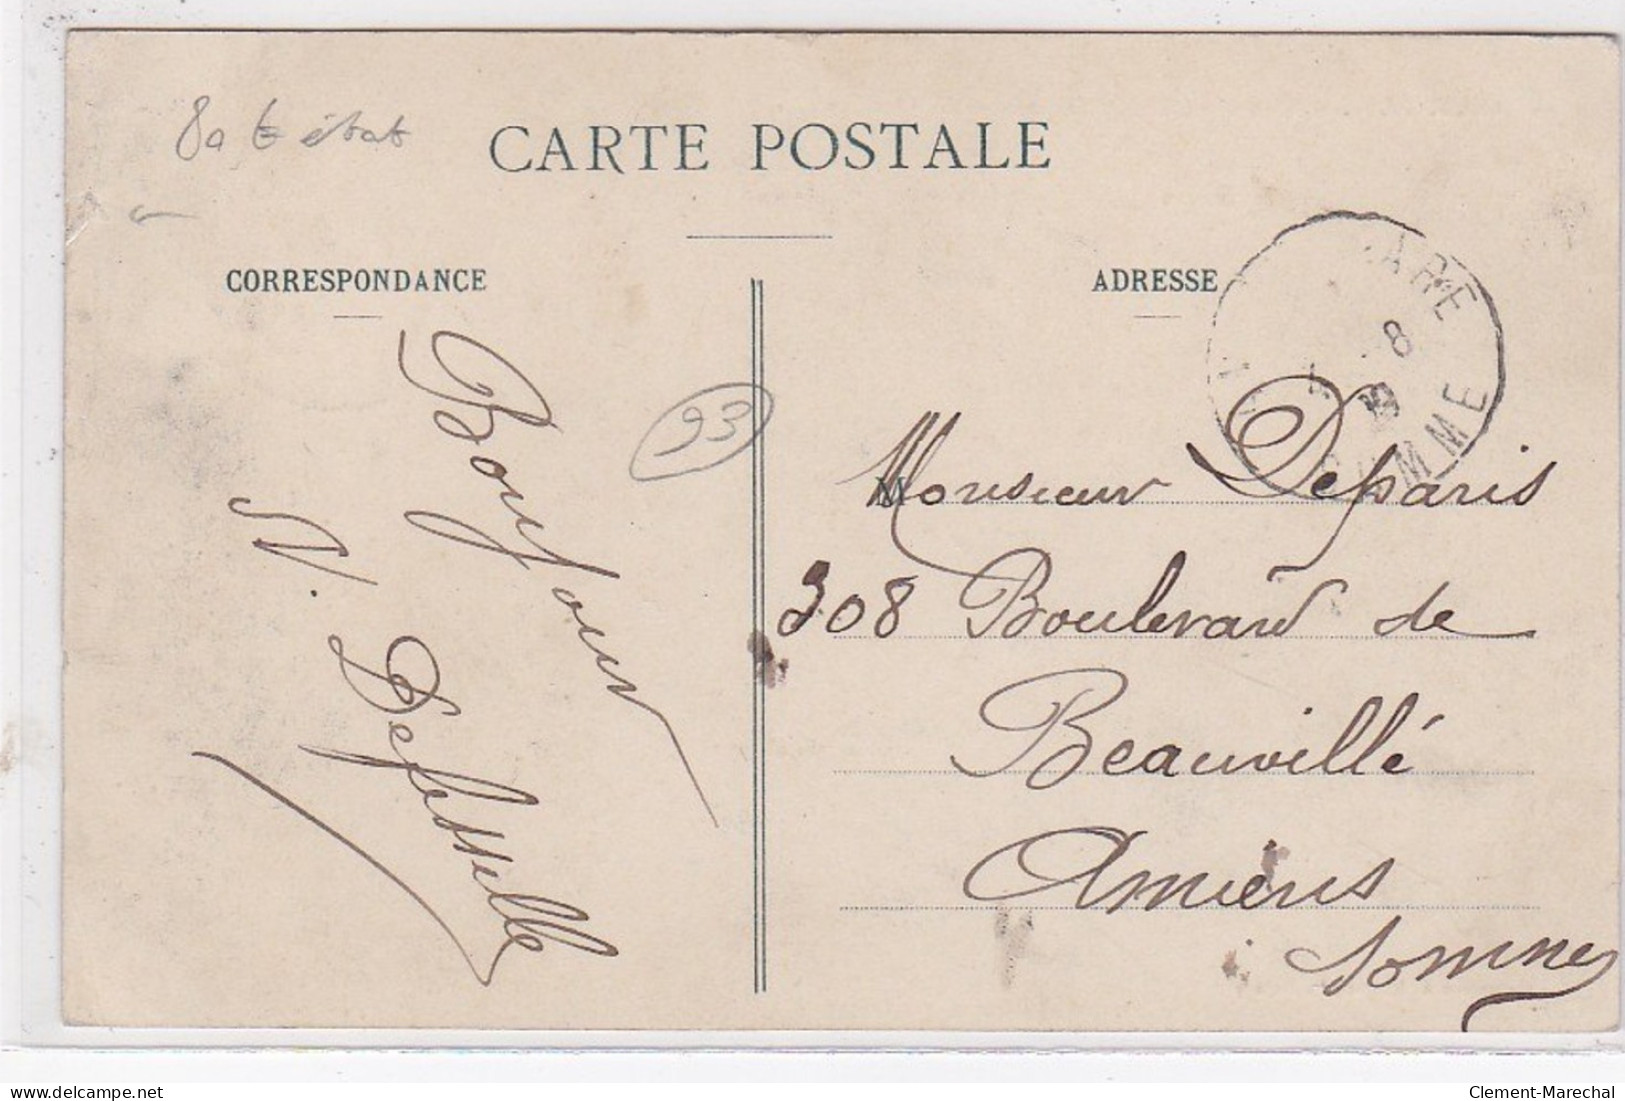 80 tb état
CARTE POSTALE
CORRESPONDANCE
ADRESSE
Bonjour
N. Defetselle
93
GARE
8
SOMME
Monsieur Deparis
308 Boulevard de
Beauvillé
Amiens
Somme
delcampe.net
Clement-Marechal